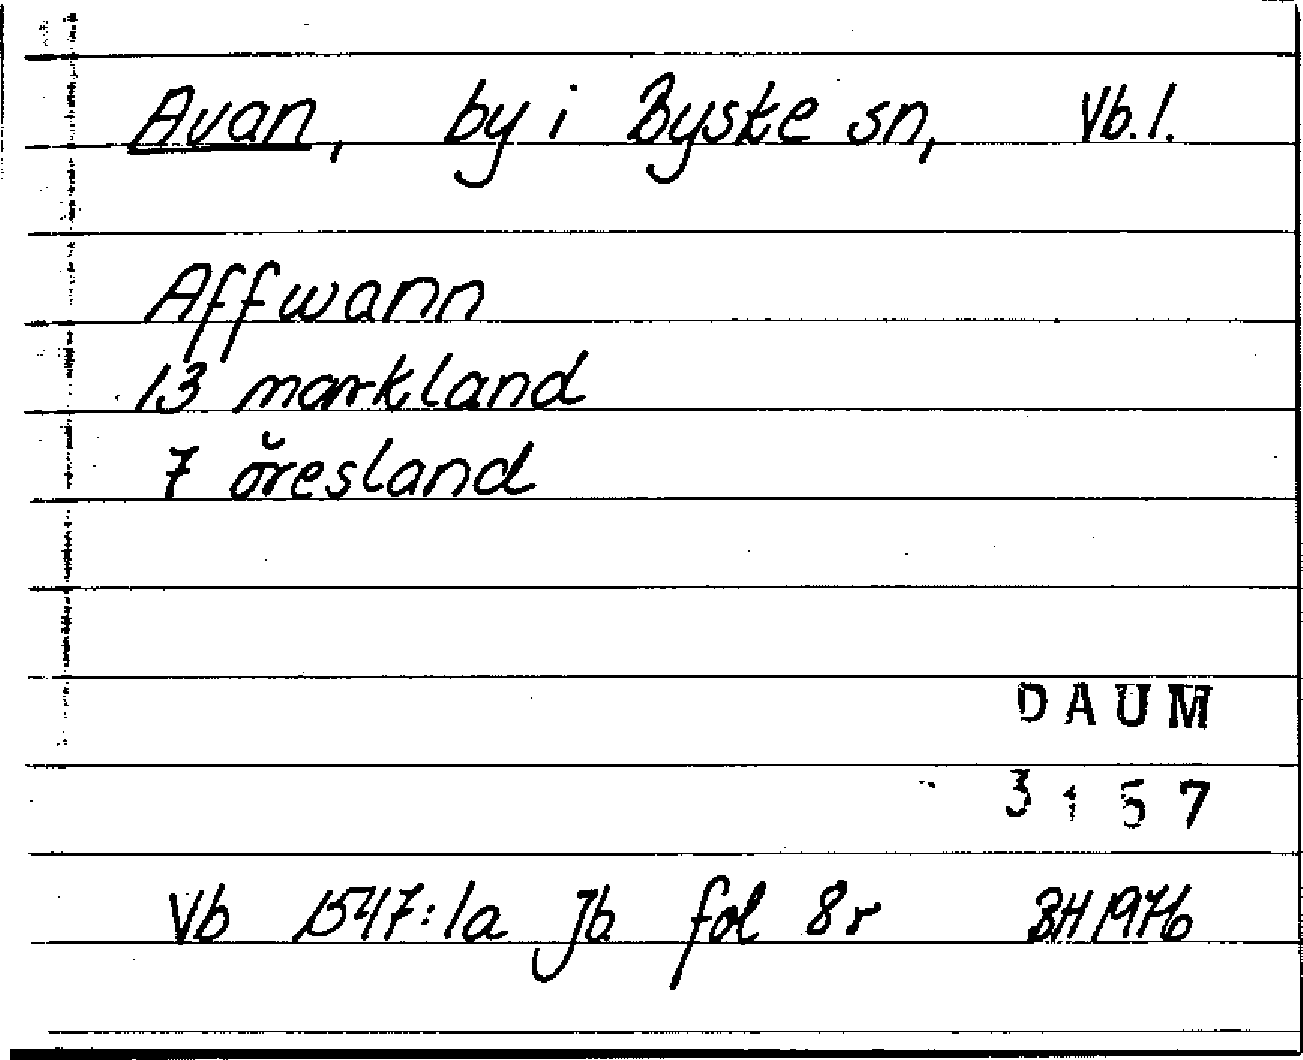 Avan, by i Byske sn, Vb. l.
Affwann
13 markland
7 öresland
DAUM
3157
Vb 1547:1a Jb fol 8r BH 1976